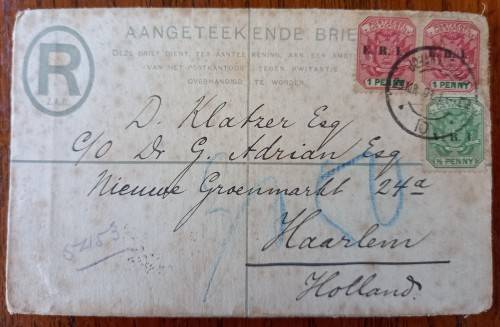 AANGETEEKENDE BRIEF
DEZE BRIEF DIENT, TER AANTEEKENING, AAN EEN AMBT
VAN HET POSTKANTOOR TEGEN KWITANTIE
OVERHANDIGD TE WORDEN.
R
Z.A.R.
E. R. I.
1 PENNY
1 PENNY
R. I.
½ PENNY
D. Klatzer Esq
c/o Dr G. Adrian Esq
Nieuwe Groenmarkt 24a
Haarlem
Holland.